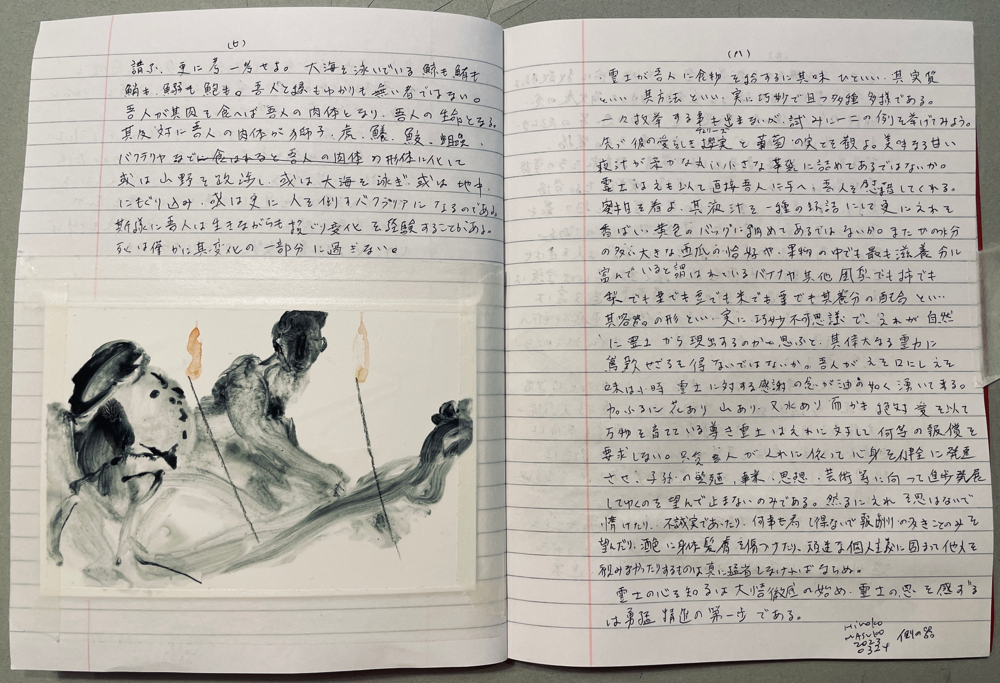 (七)
請ふ、更に考一考せよ。大海を泳いでいる鯨も鯖も
鯛も、鰯も鮑も。吾人と縁もゆかりも無い者ではない。
吾人が其肉を食へば吾人の肉体となり、吾人の生命となる。
其反対に吾人の肉体が獅子、虎、鱶、鮫、蛆蟲、
バクテリヤなどに食はれると吾人の肉体の形体に化して
或は山野を跋渉し、或は大海を泳ぎ、或は地中
にもぐり込み、或は更に人を倒すバクテリアになるのである。
斯様に吾人は生きながらも投じり変化を経験することがある。
死は僅かに其変化の一部分に過ぎない。
(八)
霊土が吾人に食物を給するに其味ひといい、其実質
といい、其方法といい、実に巧妙で且つ多種多様である。
一々枚挙する事も出来ないが、試みに一二の例を挙げてみよう。
チェリース
先づ彼の愛らしき桜実と葡萄の実とを観よ。美味なる甘い
液汁が柔かな丸い小さな革袋に詰めてあるではないか。
霊土はえも以て直接吾人に与へ、吾人を慰藉してくれる。
蜜柑を看よ、其液汁を一種の綿詰にして更にえれを
香ばしい黄色のバッグに納めてあるではないか。またかの水分
の多い大きな西瓜の恰好や、果物の中でも最も滋養分に
富んでいると謂はれているバナナや其他団栗でも柿でも
梨でも栗でも豆でも米でも麦でも其養分の配合といい
其容器の形といい、実に巧妙不可思議で、えれが自然
に霊土から現出するのかと思ふと、其偉大なる霊力に
驚歎せざるを得ないではないか。吾人がえを口にしえを
味はふ時霊土に対する感謝の念が油の如く湧いて来る。
加ふるに花あり山あり、又水あり而かも絶対愛を以て
万物を育てている尊き霊土はえれに対して何等の報償を
要求しない。只吾人がくれに依って心身を健全に発達
させ、子孫の繁殖、事業、思想、芸術等に向って進歩発展
してゆくのを望んで止まないのみである。然るにえれを思はないで
情けたり、不誠実であったり、何事も為し得ないで報酬の多きことのみを
望んだり、濫に身体髪膚を傷つけたり、頑迷な個人主義に固まって他人を
怨みなやったりするものは真に猛省しなければならぬ。
霊土の心を知るは大悟徹底の始め、霊土の恩を感ずる
は勇猛精進の第一歩である。
Hiroko
Masuko
2023
0324